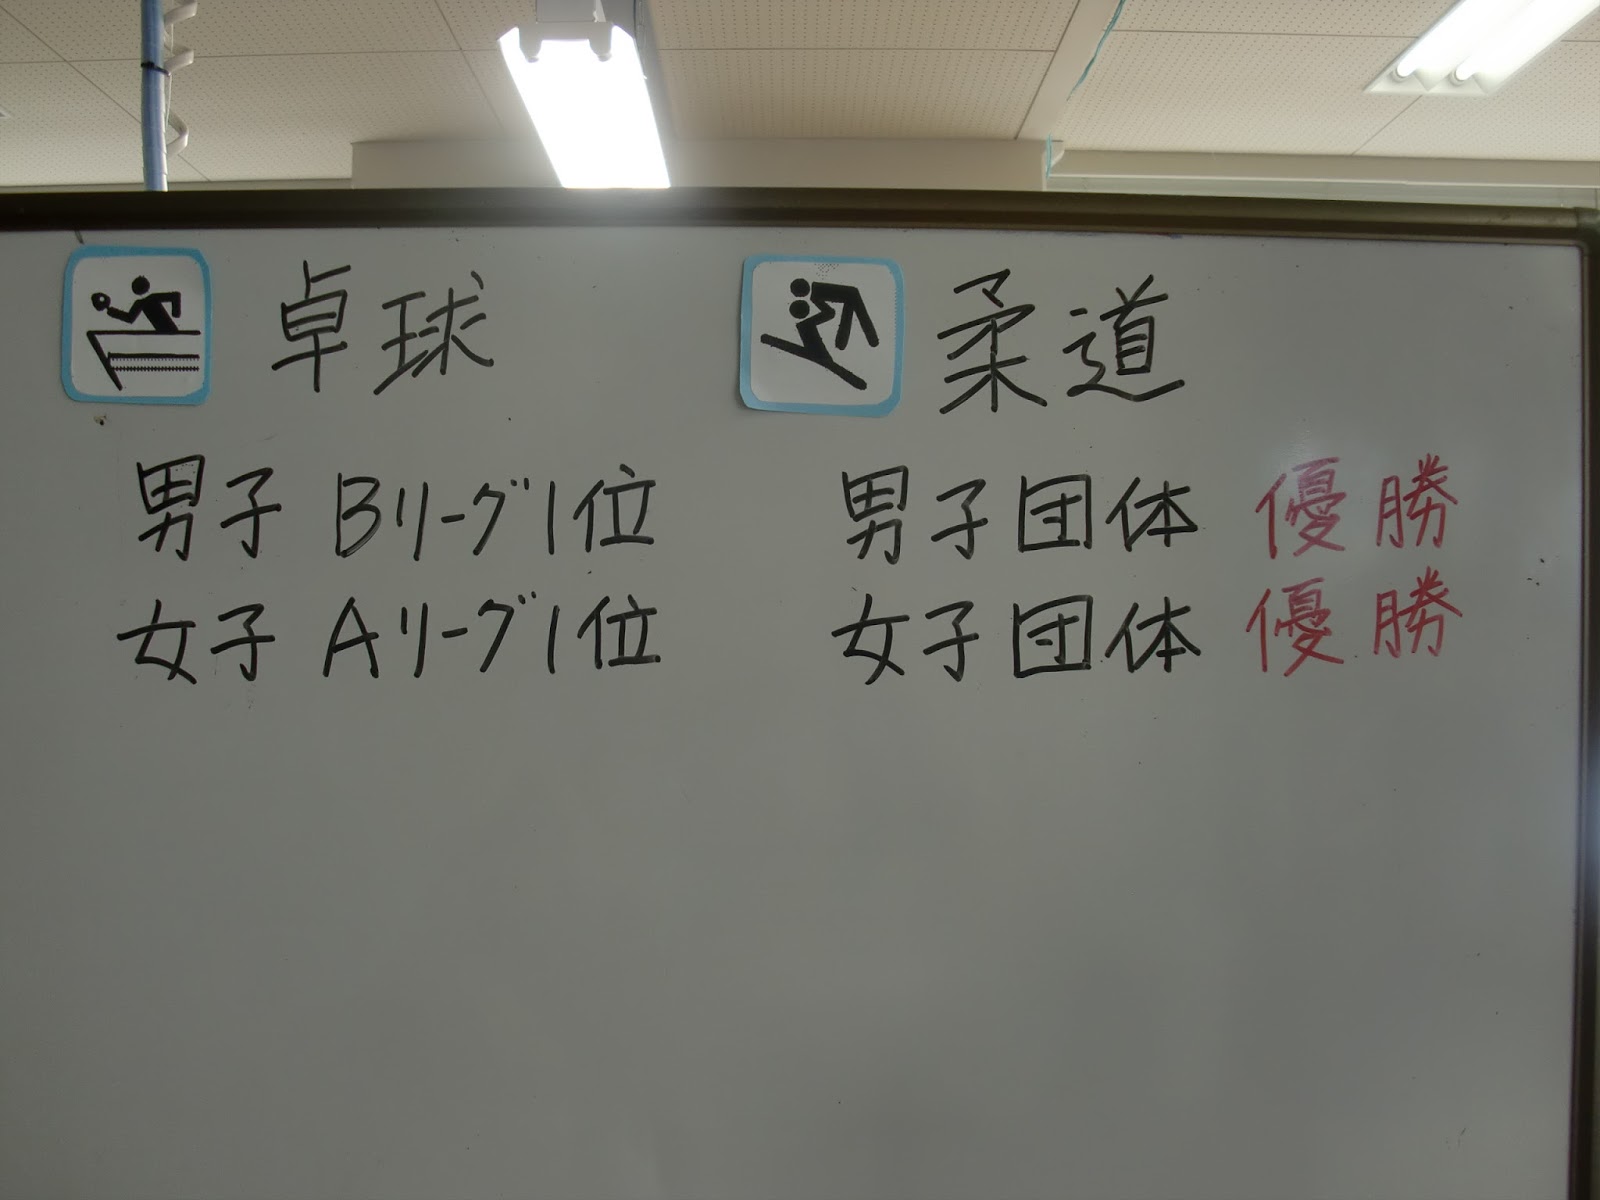 卓球
男子 Bリーグ1位
女子 Aリーグ1位
柔道
男子団体 優勝
女子団体 優勝